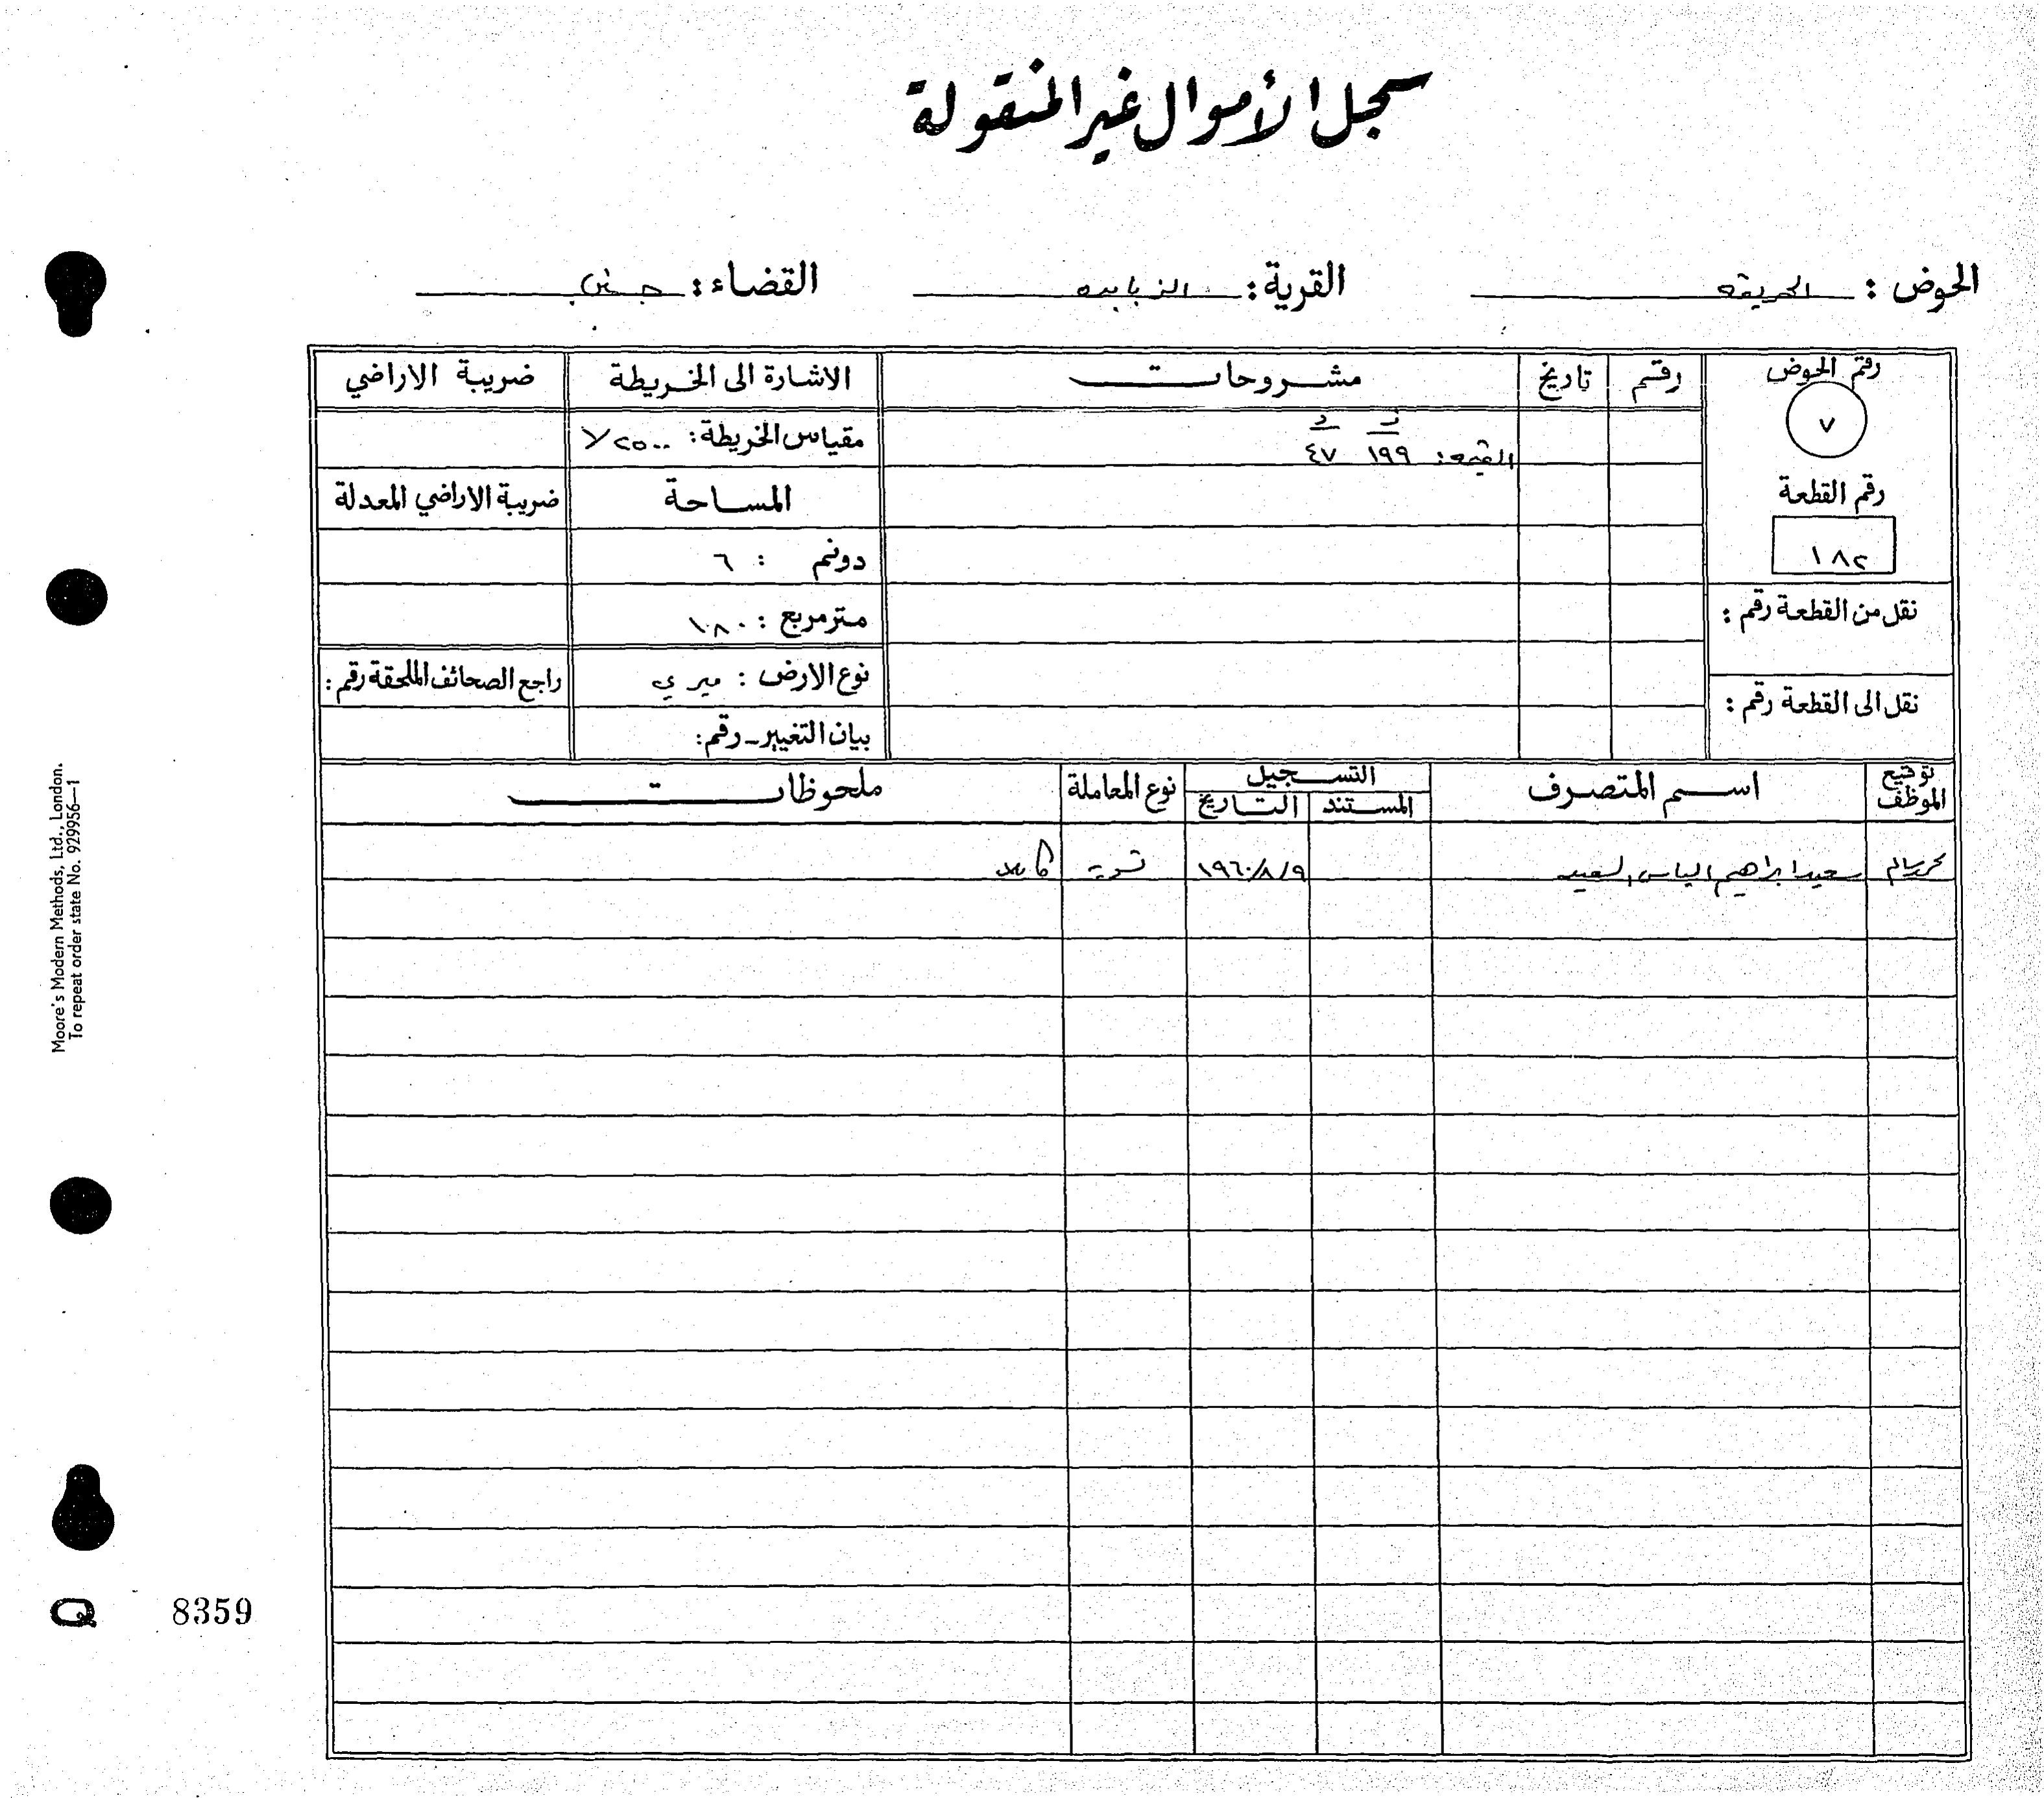 سجل الأموال غير المنقولة
الحوض : الحريقه القرية : الزبابده القضاء : جنين
رقم الحوض رقم تاريخ مشروحات الاشارة الى الخريطة ضريبة الاراضي
٧
ف د
القيمه : ١٩٩ ٤٧
مقياس الخريطة : ١/٢٥٠٠
رقم القطعة
١٨٢
المساحة ضريبة الاراضي المعدلة
دونم : ٦
نقل من القطعة رقم :
متر مربع : ١٨٠
نوع الارض : ميري راجع الصحائف الملحقة رقم :
نقل الى القطعة رقم :
بيان التغيير - رقم :
توقيع الموظف اسم المتصرف التسجيل نوع المعاملة ملحوظات
المستند التاريخ
سعيد ابراهيم الياس السعيد ١٩٦٠/٨/٩ تسوية كامله
Moore's Modern Methods, Ltd., London.
To repeat order state No. 929956—1
Q 8359